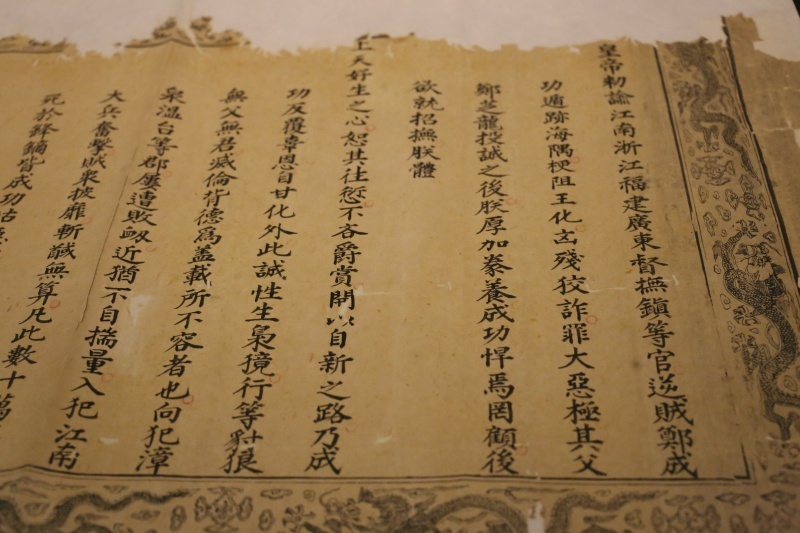 皇帝勅諭江南浙江福建廣東督撫鎮等官逆賊鄭成
功遁跡海隅梗阻王化玄殘狡詐罪大惡極其父
鄭芝龍投誠之後朕厚加豢養成功悍焉罔顧後
欲就招撫朕體
上天好生之心恕其往愆不吝爵賞開以自新之路乃成
功反覆辜恩自甘化外此誠性生梟獍行等豺狼
無父無君滅倫背德為蓋載所不容者也向犯漳
泉溫台等郡屢遭敗衂近猶不自揣量入犯江南
大兵奮擊賊衆披靡斬馘無算凡此數十萬
死於鋒鏑皆成功